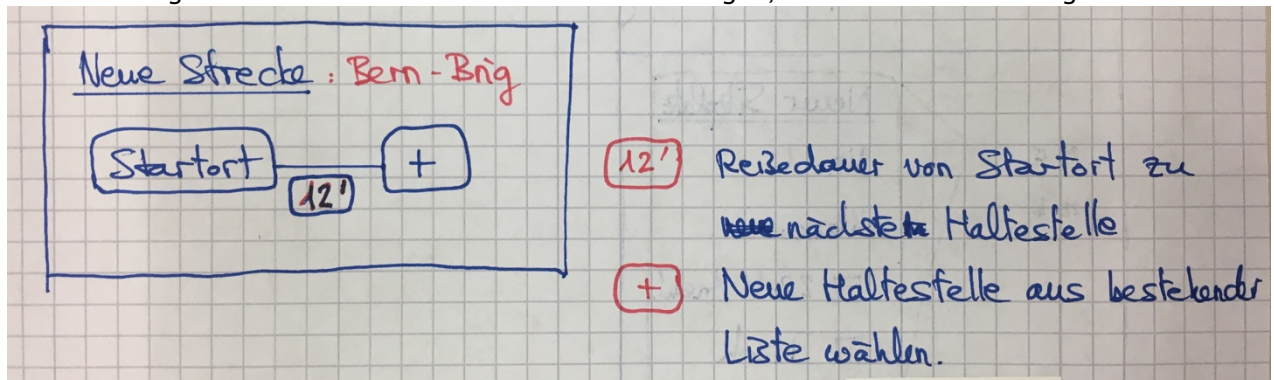 Neue Strecke: Bern-Brig
Startort
+
12'
12' Reisedauer von Startort zu
nächste Haltestelle
+ Neue Haltestelle aus bestehender
Liste wählen.